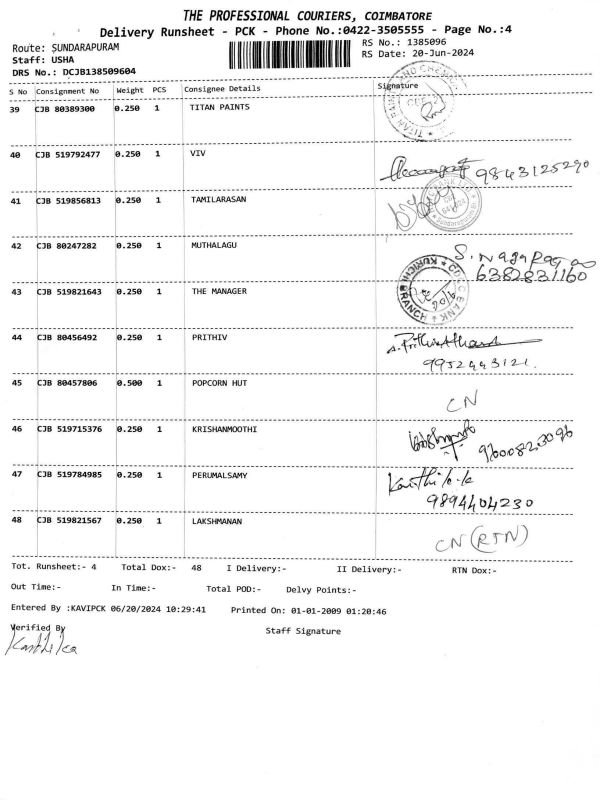 THE PROFESSIONAL COURIERS, COIMBATORE
Delivery Runsheet - PCK - Phone No.:0422-3505555 - Page No.:4
Route: SUNDARAPURAM
RS No.: 1385096
Staff: USHA
RS Date: 20-Jun-2024
DRS No.: DCJB138509604
S No Consignment No Weight PCS Consignee Details Signature
39 CJB 80389300 0.250 1 TITAN PAINTS
40 CJB 519792477 0.250 1 VIV
9843125290
41 CJB 519856813 0.250 1 TAMILARASAN
42 CJB 80247282 0.250 1 MUTHALAGU
6382831160
43 CJB 519821643 0.250 1 THE MANAGER
KURICHI BRANCH
44 CJB 80456492 0.250 1 PRITHIV
9952443121.
45 CJB 80457806 0.500 1 POPCORN HUT
CN
46 CJB 519715376 0.250 1 KRISHANMOOTHI
9600823096
47 CJB 519784985 0.250 1 PERUMALSAMY
9894404230
48 CJB 519821567 0.250 1 LAKSHMANAN
CN (RTN)
Tot. Runsheet:- 4 Total Dox:- 48 I Delivery:- II Delivery:- RTN Dox:-
Out Time:- In Time:- Total POD:- Delvy Points:-
Entered By :KAVIPCK 06/20/2024 10:29:41 Printed On: 01-01-2009 01:20:46
Verified By
Staff Signature